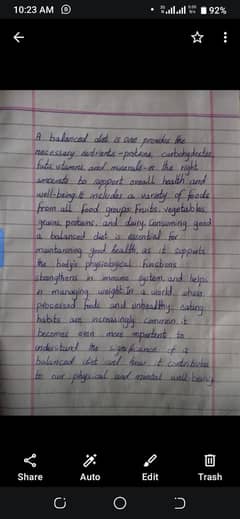 10:23 AM
92%
A balanced diet is one provides the
necessary nutrients-proteins, carbohydrates,
fats, vitamins, and minerals-in the right
amounts to support overall health and
well-being. It includes a variety of foods
from all food groups: Fruits, vegetables,
grains, proteins, and dairy. Consuming good
a balanced diet is essential for
maintaining good health, as it supports
the body's physiological functions
strengthens in immune system, and helps
in managing weight. In a world, where
processed foods and unhealthy eating
habits are increasingly common, it
becomes even more important to
understand the significance of a
balanced diet and how it contributes
to our physical and mental well-being
Share Auto Edit Trash